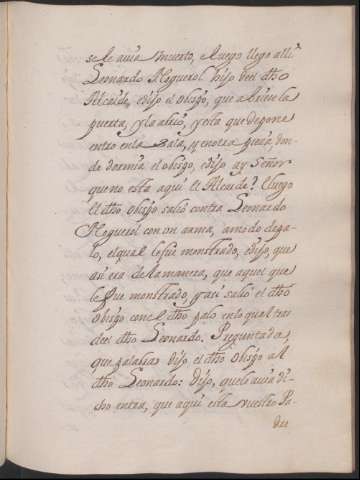 se le avia muerto, e luego llego alli
Leonardo Noguerol hijo del dho
Alcaide, e dijo el obispo, que abriese la
puerta, y la abrio, y esta que deponе
entro en la sala, y en otra pieza, don-
de dormia el obispo, e dijo ay Señor
que no esta aqui el Alcaide? E luego
el dho obispo salio contra Leonardo
Noguerol con un arma, a modo de pa-
lo, el qual le fue monstrado, e dijo, que
asi era de la manera, que aquel que
le fue monstrado, y asi salio el dho
obispo con el dho palo en lo qual tras
del dho Leonardo. Preguntada,
que palabras dijo el dho obispo al
dho Leonardo: Dijo, que le avia di-
cho entra, que aqui esta vuestro Pa-
dre